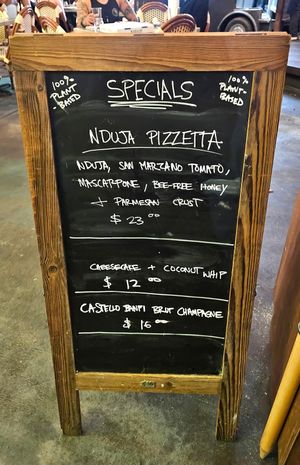 100% PLANT -BASED
SPECIALS
100% PLANT -BASED
NDUJA PIZZETTA
NDUJA, SAN MARZANO TOMATO,
MASCARPONE, BEE-FREE HONEY
+ PARMESAN CRUST
$ 23.00
CHEESECAKE + COCONUT WHIP
$ 12.00
CASTELLO BANFI BRUT CHAMPAGNE
$ 16.00